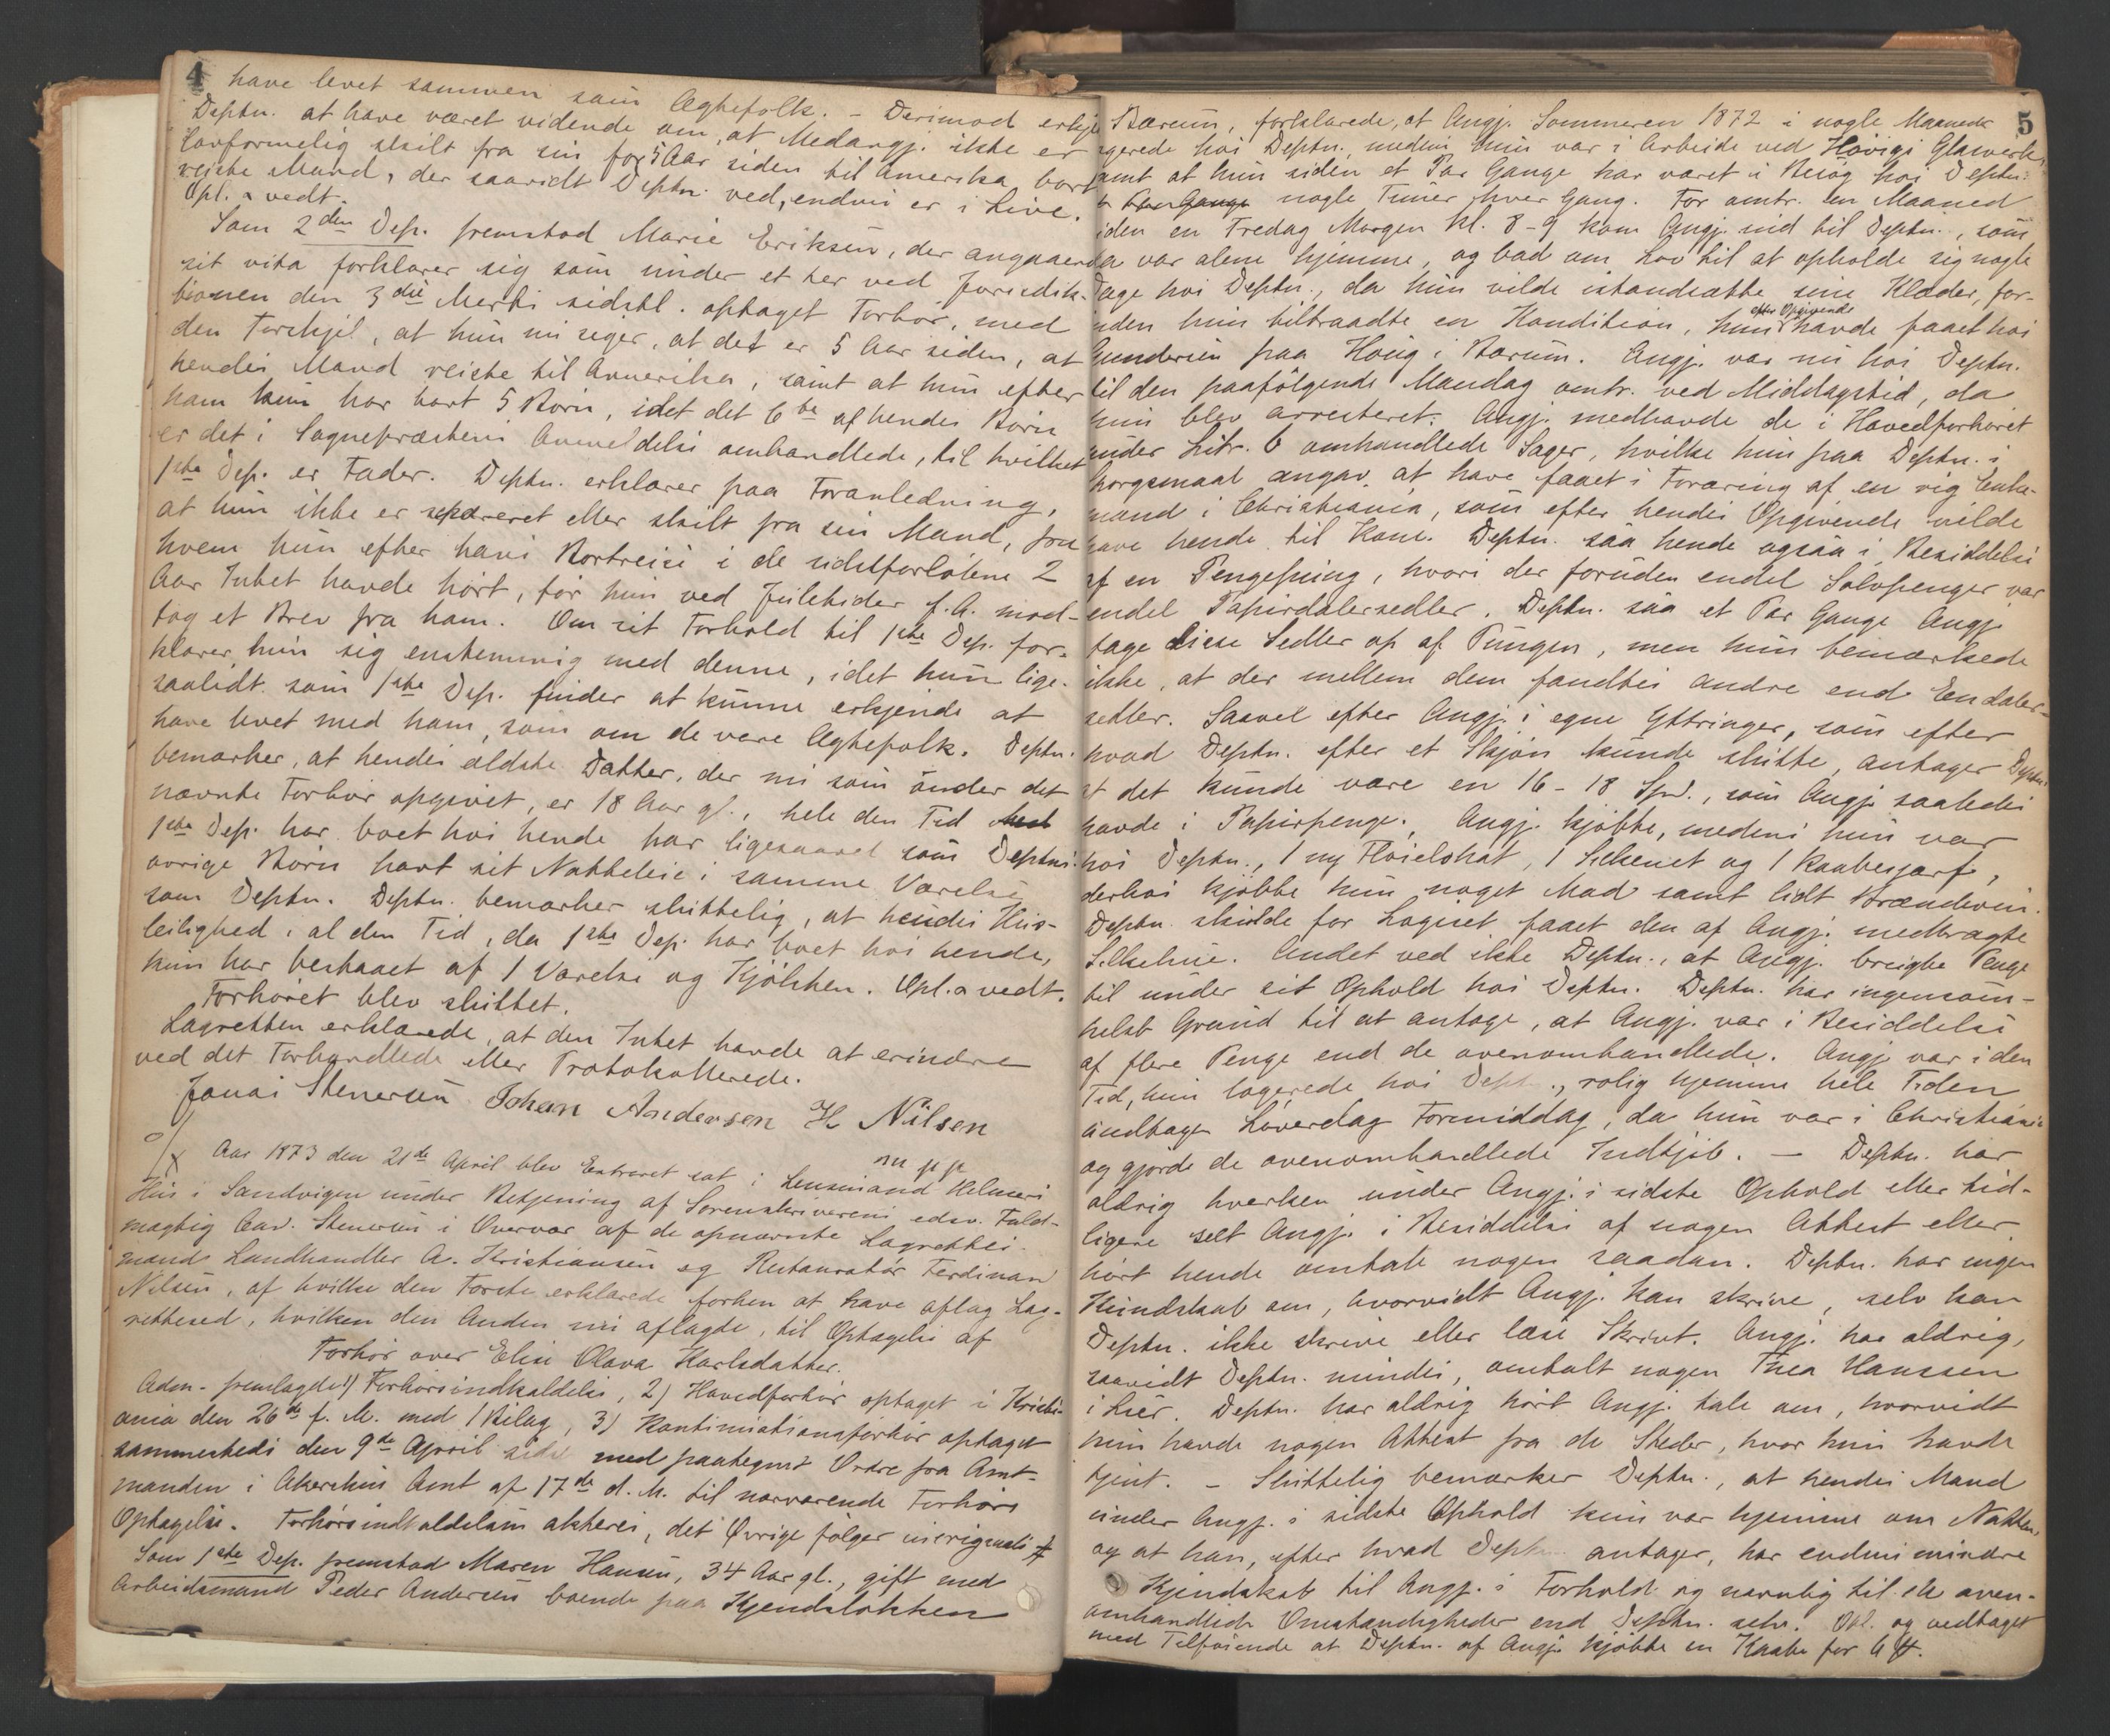 4
have levet sammen som Ægtefolk. - Derimod erkj
Deptn. at have været vidende om, at Medangj. ikke er
lovformelig skilt fra sin for 5 Aar siden til Amerika bort
reiste Mand, der saavidt Deptn. ved, endnu er i Live.
Opl. & vedt.
Som 2den Dep. fremstod Marie Eriksen, der angaaende
sit vita forklarer sig som under et her ved Jurisdik-
tionen den 3die Marts sidstl. optaget Forhör, med
den Forskjel, at hun nu siger, at det er 5 Aar siden, at
hendes Mand reiste til Amerika, samt at hun efter
ham kun har havt 5 Börn, idet det 6te af hendes Börn
er det i Sognepræstens Anmeldelse omhandlede, til hvilket
1ste Dep. er Fader. Deptn. erklærer paa Foranledning,
at hun ikke er separeret eller skilt fra sin Mand, fra
hvem hun efter hans Bortreise i de sidstforløbne 2
Aar Intet havde hørt, før hun ved Juletider f. A. mod-
tog et Brev fra ham. Om sit Forhold til 1ste Dep. for-
klarer hun sig enstemmig med denne, idet hun lige-
saalidt som 1ste Dep. finder at kunne erkjende at
have levet med ham, som om de vare Ægtefolk. Deptn.
bemærker, at hendes ældste Datter, der nu som under det
nævnte Forhör opgivet, er 18 Aar gl., hele den Tid
1ste Dep. har boet hos hende har ligesaavel som Deptns.
øvrige Börn havt sit Natteleie i samme Værelse
som Deptn. Deptn. bemærker sluttelig, at hendes Hus-
leilighed, al den Tid, da 1ste Dep. har boet hos hende,
kun har bestaaet af 1 Værelse og Kjökken. Opl. & vedt.
Forhöret blev sluttet.
Lagretten erklærede, at den Intet havde at erindre
ved det Forhandlede eller Protokollerede.
Jonas Stenersen Johan Andersen H Nilsen
m p p
Aar 1873 den 21de April blev Extraret sat i Lensmand Helmers
Hus i Sandvigen under Betjening af Sorenskriverens edsv. Fuld-
mægtig Cand. Stenersen i Overvær af de opnævnte Lagrettes-
mænd Landhandler A. Kristiansen og Restauratör Ferdinan
Nilsen, af hvilke den Første erklærede forhen at have aflag Lag-
rettesed, hvilken den Anden nu aflagde, til Optagelse af
Forhör over Elise Olava Karlsdatter.
Adm. fremlagde 1) Forhørsindkaldelse, 2) Hovedforhör optaget i Kristi-
ania den 26de f. M. med 1 Bilag, 3) Kontinuationsforhör optaget
sammesteds den 9de April sidstl. med paategnet Ordre fra Amt-
manden i Akershus Amt af 17de d. M. til nærværende Forhørs
Optagelse. Forhørsindkaldelsen akteres, det Øvrige følger in originali
Som 1ste Dep. fremstod Maren Hansen, 34 Aar gl., gift med
Arbeidsmand Peder Andersen boende paa Kjendsløkken
5
Bærum, forklarede, at Angj. Sommeren 1872 i nogle Maaneder
ogerede hos Deptn., medens hun var i Arbeide ved Høvigs Glasværk,
samt at hun siden et Par Gange har været i Besøg hos Deptn.
nogle Timer hver Gang. For omtr. en Maaned
siden en Fredag Morgen Kl. 8-9 kom Angj. ind til Deptn., som
da var alene hjemme, og bad om Lov til at opholde sig nogle
Dage hos Deptn., da hun vilde istandsætte sine Klæder, for-
inden hun tiltraadte en Kondition, hun efter Opgivende havde faaet hos
Gundersen paa Houg i Bærum. Angj. var nu hos Deptn.
til den paafølgende Mandag omtr. ved Middagstid, da
hun blev arresteret. Angj. medhavde de i Hovedforhøret
under Litr. C omhandlede Sager, hvilke hun paa Deptn.s
Spørgsmaal angav at have faaet i Foræring af en rig Enke-
mand i Christiania, som efter hendes Opgivende vilde
have hende til Kone. Deptn. saa hende ogsaa i Besiddelse
af en Pengepung, hvori der foruden endel Sølvpenger var
endel Papirdalersedler. Deptn. saa et Par Gange Angj.
tage disse Sedler op af Pungen, men hun bemærkede
ikke, at der mellem dem fandtes andre end Eendaler-
sedler. Saavel efter Angj.s egne Yttringer, som efter
hvad Deptn. efter et Skjøn kunde slutte, antager Deptn.
at det kunde være en 16-18 Spd., som Angj. saaledes
havde i Papirpenge. Angj. kjøbte, medens hun var
hos Deptn., 1 ny Fløielshat, 1 Silkenet og 1 Kaabescarf,
derhos kjøbte hun noget Mad samt lidt Brændevin.
Deptn. skulde for Logiset faaet den af Angj. medbragte
Silkehue. Andet ved ikke Deptn., at Angj. brugte Penge
til under sit Ophold hos Deptn. Deptn. har ingensom-
helst Grund til at antage, at Angj. var i Besiddelse
af flere Penge end de ovenomhandlede. Angj. var i den
Tid, hun logerede hos Deptn., rolig hjemme hele Tiden
undtagen Løverdag Formiddag, da hun var i Christiania
og gjorde de ovenomhandlede Indkjøb. — Deptn. har
aldrig hverken under Angj.s sidste Ophold eller tid-
ligere seet Angj. i Besiddelse af nogen Attest eller
hørt hende omtale nogen saadan. Deptn. har ingen
Kundskab om, hvorvidt Angj. kan skrive, selv kan
Deptn. ikke skrive eller læse Skrivt. Angj. har aldrig,
saavidt Deptn. mindes, omtalt nogen Thea Hanssen
i Lier. Deptn. har aldrig hørt Angj. tale om, hvorvidt
hun havde nogen Attest fra de Steder, hvor hun havde
tjent. - Sluttelig bemærker Deptn., at hendes Mand
under Angj.s sidste Ophold kun var hjemme om Natten,
og at han, efter hvad Deptn. antager, har endnu mindre
Kjendskab til Angj.s Forhold og navnlig til de oven-
omhandlede Omstændigheder end Deptn. selv. Opl. og vedtaget
med Tilføiende at Deptn. af Angj. kjøbte en Kaabe for